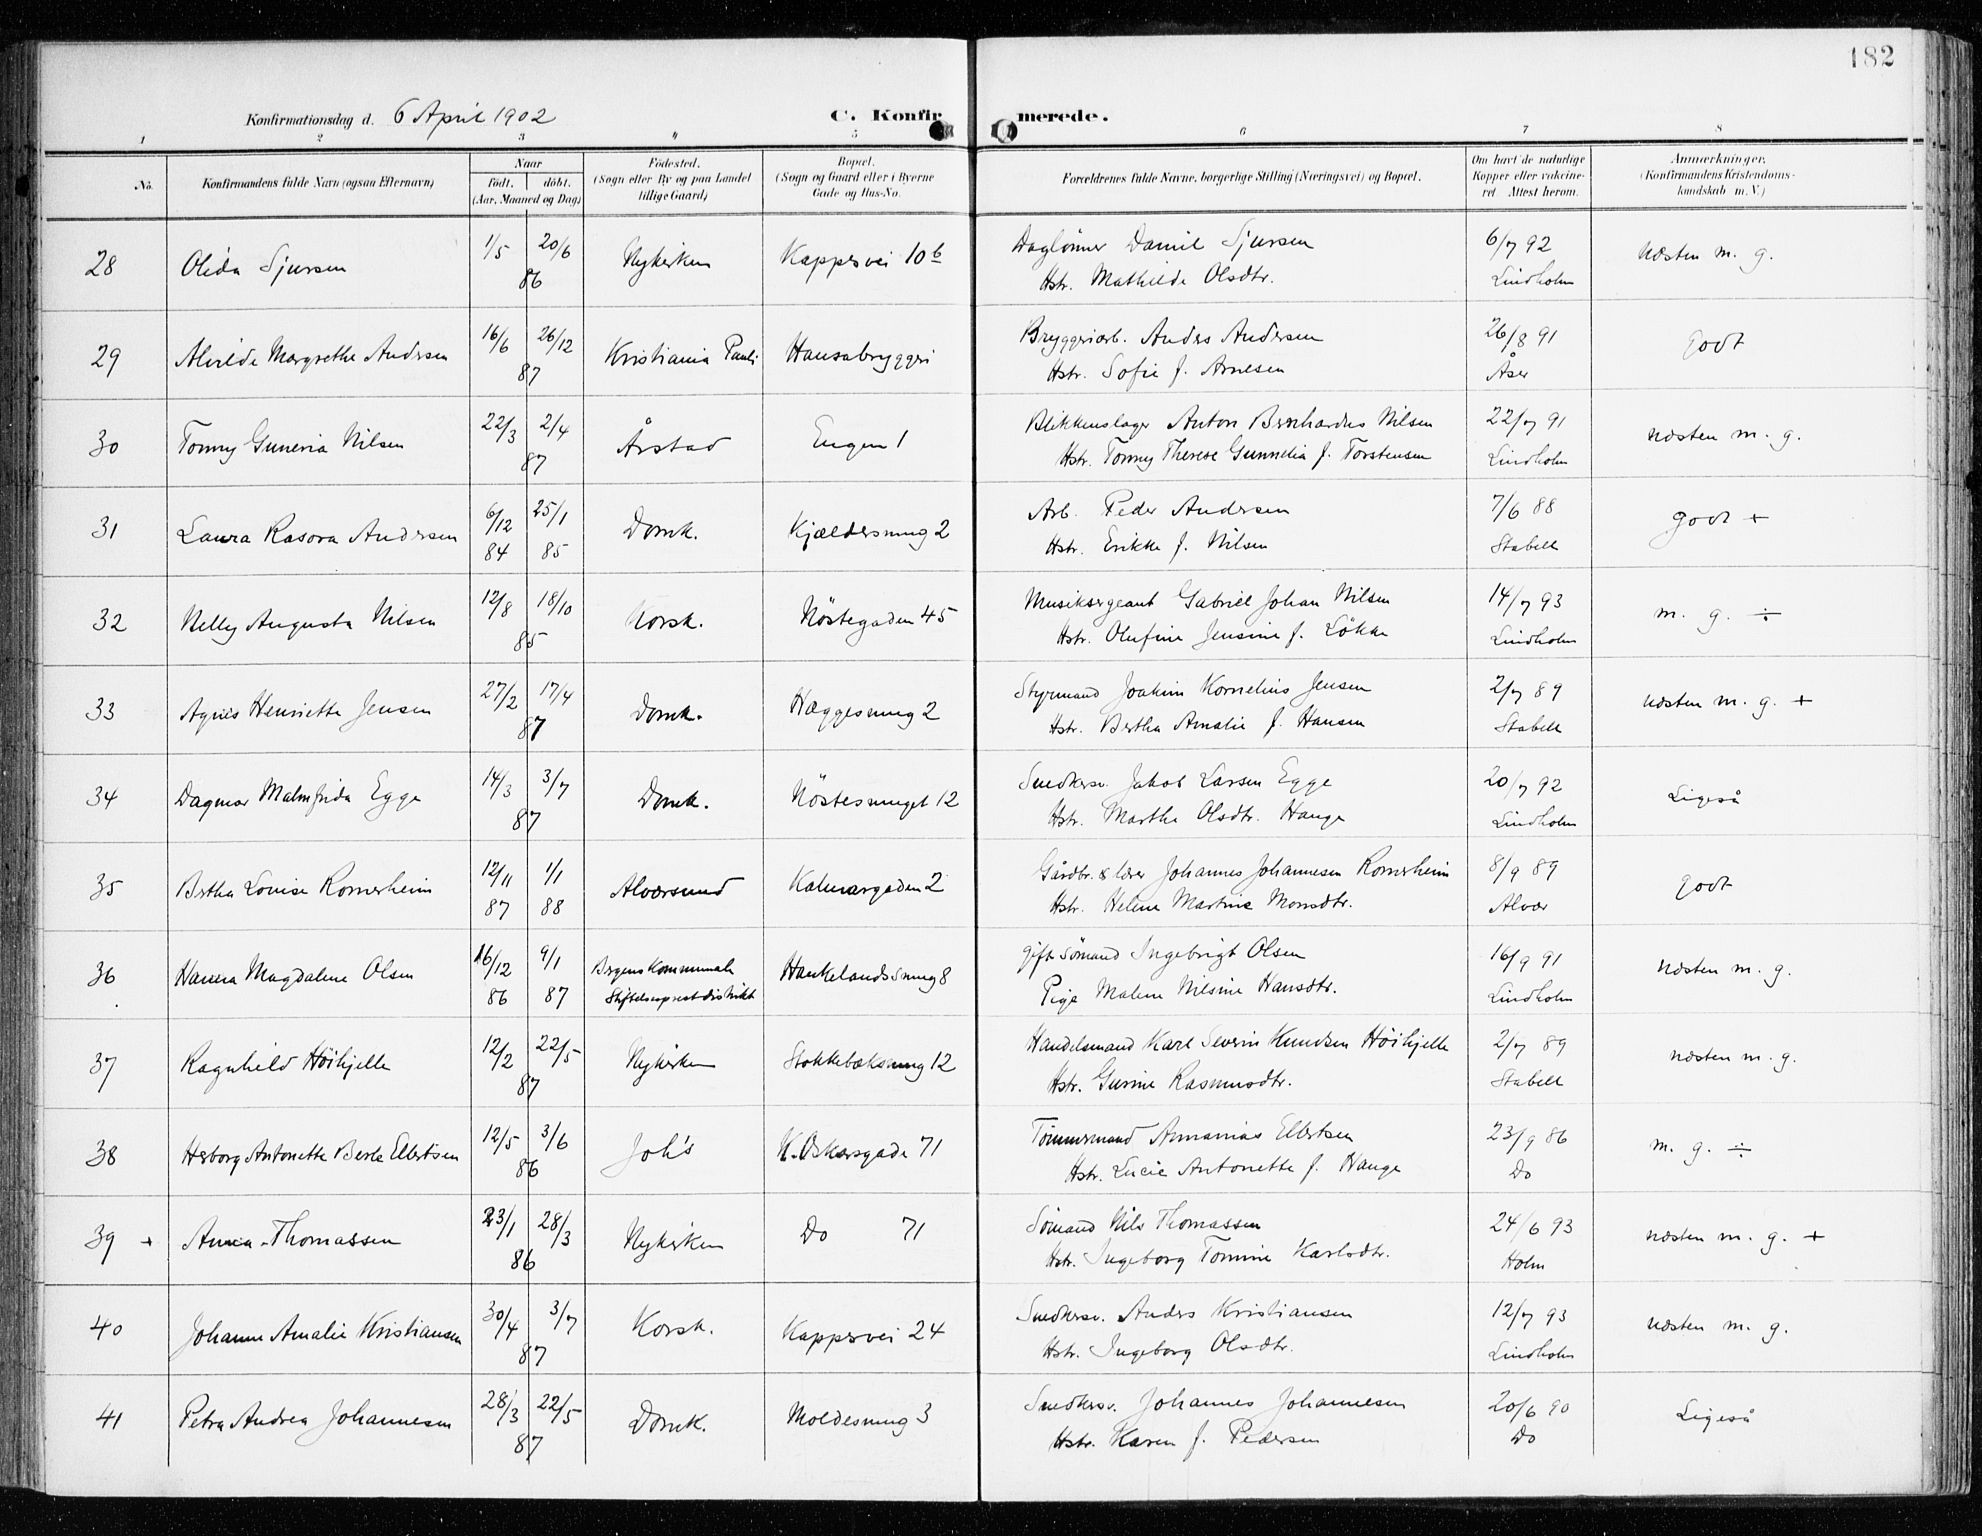 182
Konfirmationsdag d. 6 April 1902 C. Konfirmerede.
1 2 3 " 5 6 7 8
No. Konfirmandens fulde Navn (ogsaa Efternavn) Naar födt. döbt. (Aar, Maaned og Dag) Födested. (Sogn eller By og paa Landet tillige Gaard) Bopæl. (Sogn og Gaard eller i Byerne Gade og Hus-No. Forældrenes fulde Navne, borgerlige Stilling (Næringsvei) og Bopæl. Om havt de naturlige Kopper eller vakcineret. Attest herom. Anmærkninger. (Konfirmandens Kristendomskundskab m. V.)
28 Olida Sjursen 1/5 20/6 Nykirken Kappesvei 10 b Daglönner Daniel Sjursen 6/7 92 næsten m. g.
86 Hstr. Mathilde Olsdtr. Lindholm
29 Alvilde Margrethe Andersen 16/6 26/12 Kristiania Pauli Hansabryggeri Bryggeriarb. Anders Andersen 26/8 91 godt
87 Hstr. Sofie f. Arnesen Åser
30 Tonny Guneria Nilsen 22/3 2/4 Årstad Engen 1 Blikkenslager Anton Bernhardus Nilsen 22/7 91 næsten m. g.
87 Hstr. Tonny Therese Gunnelia f. Torstensen Lindholm
31 Laura Rasova Andersen 6/12 25/1 Domk. Kjældersmug 2 Arb. Peder Andersen 7/6 88 godt +
84 85 Hstr. Erikke f. Nilsen Stabell
32 Nelly Augusta Nilsen 12/8 18/10 Korsk. Nöstegaden 45 Musiksergeant Gabriel Johan Nilsen 14/7 93 m. g. ÷
85 Hstr. Olufine Jensine f. Lökke Lindholm
33 Agnes Henriette Jensen 27/2 17/4 Domk. Hæggesmug 2 Styrmand Joakim Kornelius Jensen 2/7 89 næsten m. g. +
87 Hstr. Bertha Amalie f. Hansen Stabell
34 Dagmar Malmfrida Egge 14/3 3/7 Domk. Nöstesmuget 12 Snedkersv. Jakob Larsen Egge 20/7 92 Ligeså
87 Hstr. Marthe Olsdtr. Hauge Lindholm
35 Bertha Louise Romerheim 12/11 1/1 Alværsund Kalvargaden 2 Gårdbr. & lærer Johannes Johannesen Romerheim 8/9 89 godt
87 88 Hstr. Helene Martine Monsdtr. Alvær
36 Hanna Magdalene Olsen 16/12 9/1 Bergens Kommunale Haukelandssmug 8 gift Sömand Ingebrigt Olsen 16/9 91 næsten m. g.
86 87 Stiftelsesprestdistrikt Pige Malene Nilsine Hansdtr. Lindholm
37 Ragnhild Höihjelle 12/2 22/5 Nykirken Stokkebæksmug 12 Handelsmand Karl Severin Knudsen Höihjelle 2/7 89 næsten m. g.
87 Hstr. Gurine Rasmusdtr. Stabell
38 Herborg Antonette Berle Ellertsen 12/5 3/6 Joh's K. Oskarsgade 71 Tömmermand Annanias Ellertsen 23/9 86 m. g. ÷
86 Hstr. Lucie Antonette f. Hauge Do
39 + Anna Thomassen 23/1 28/3 Nykirken Do 71 Sömand Nils Thomassen 24/6 93 næsten m. g. +
86 Hstr. Ingeborg Tomine Karlsdtr. Holm
40 Johanne Amalie Kristiansen 30/4 3/7 Korsk. Kappesvei 24 Snedkersv. Anders Kristiansen 12/7 93 næsten m. g.
87 Hstr. Ingeborg Olsdtr. Lindholm
41 Petra Andrea Johannesen 28/3 22/5 Domk. Moldesmug 3 Snedkersv. Johannes Johannesen 20/6 90 Ligeså
87 Hstr. Karen f. Pedersen Do